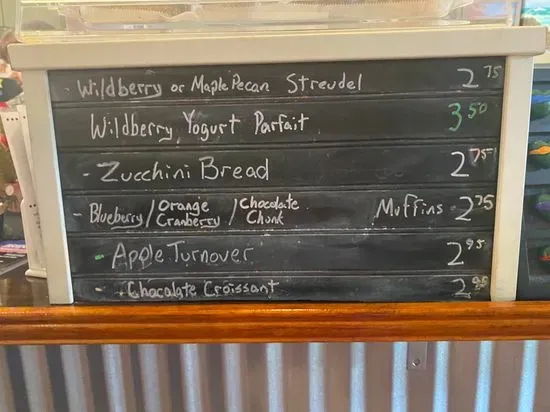 - Wildberry or Maple Pecan Streudel 2 75
Wildberry Yogurt Parfait 3 50
- Zucchini Bread 2 75
- Blueberry/Orange Cranberry/Chocolate Chunk Muffins 2 75
- Apple Turnover 2 95
- Chocolate Croissant 2